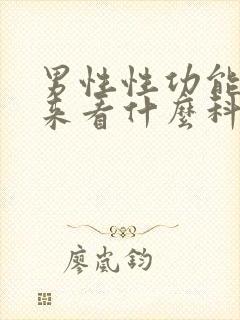 男性性功能
来看什麼科
廖嵐鈞